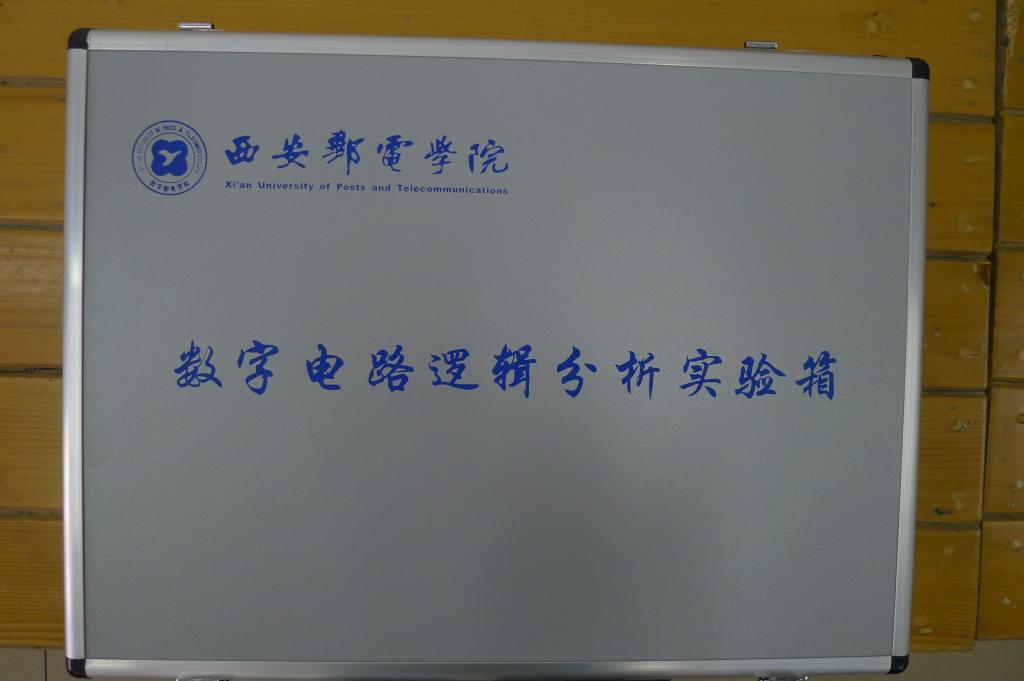 西安郵電學院
Xi'an University of Posts and Telecommunications
西安邮电学院
数字电路逻辑分析实验箱